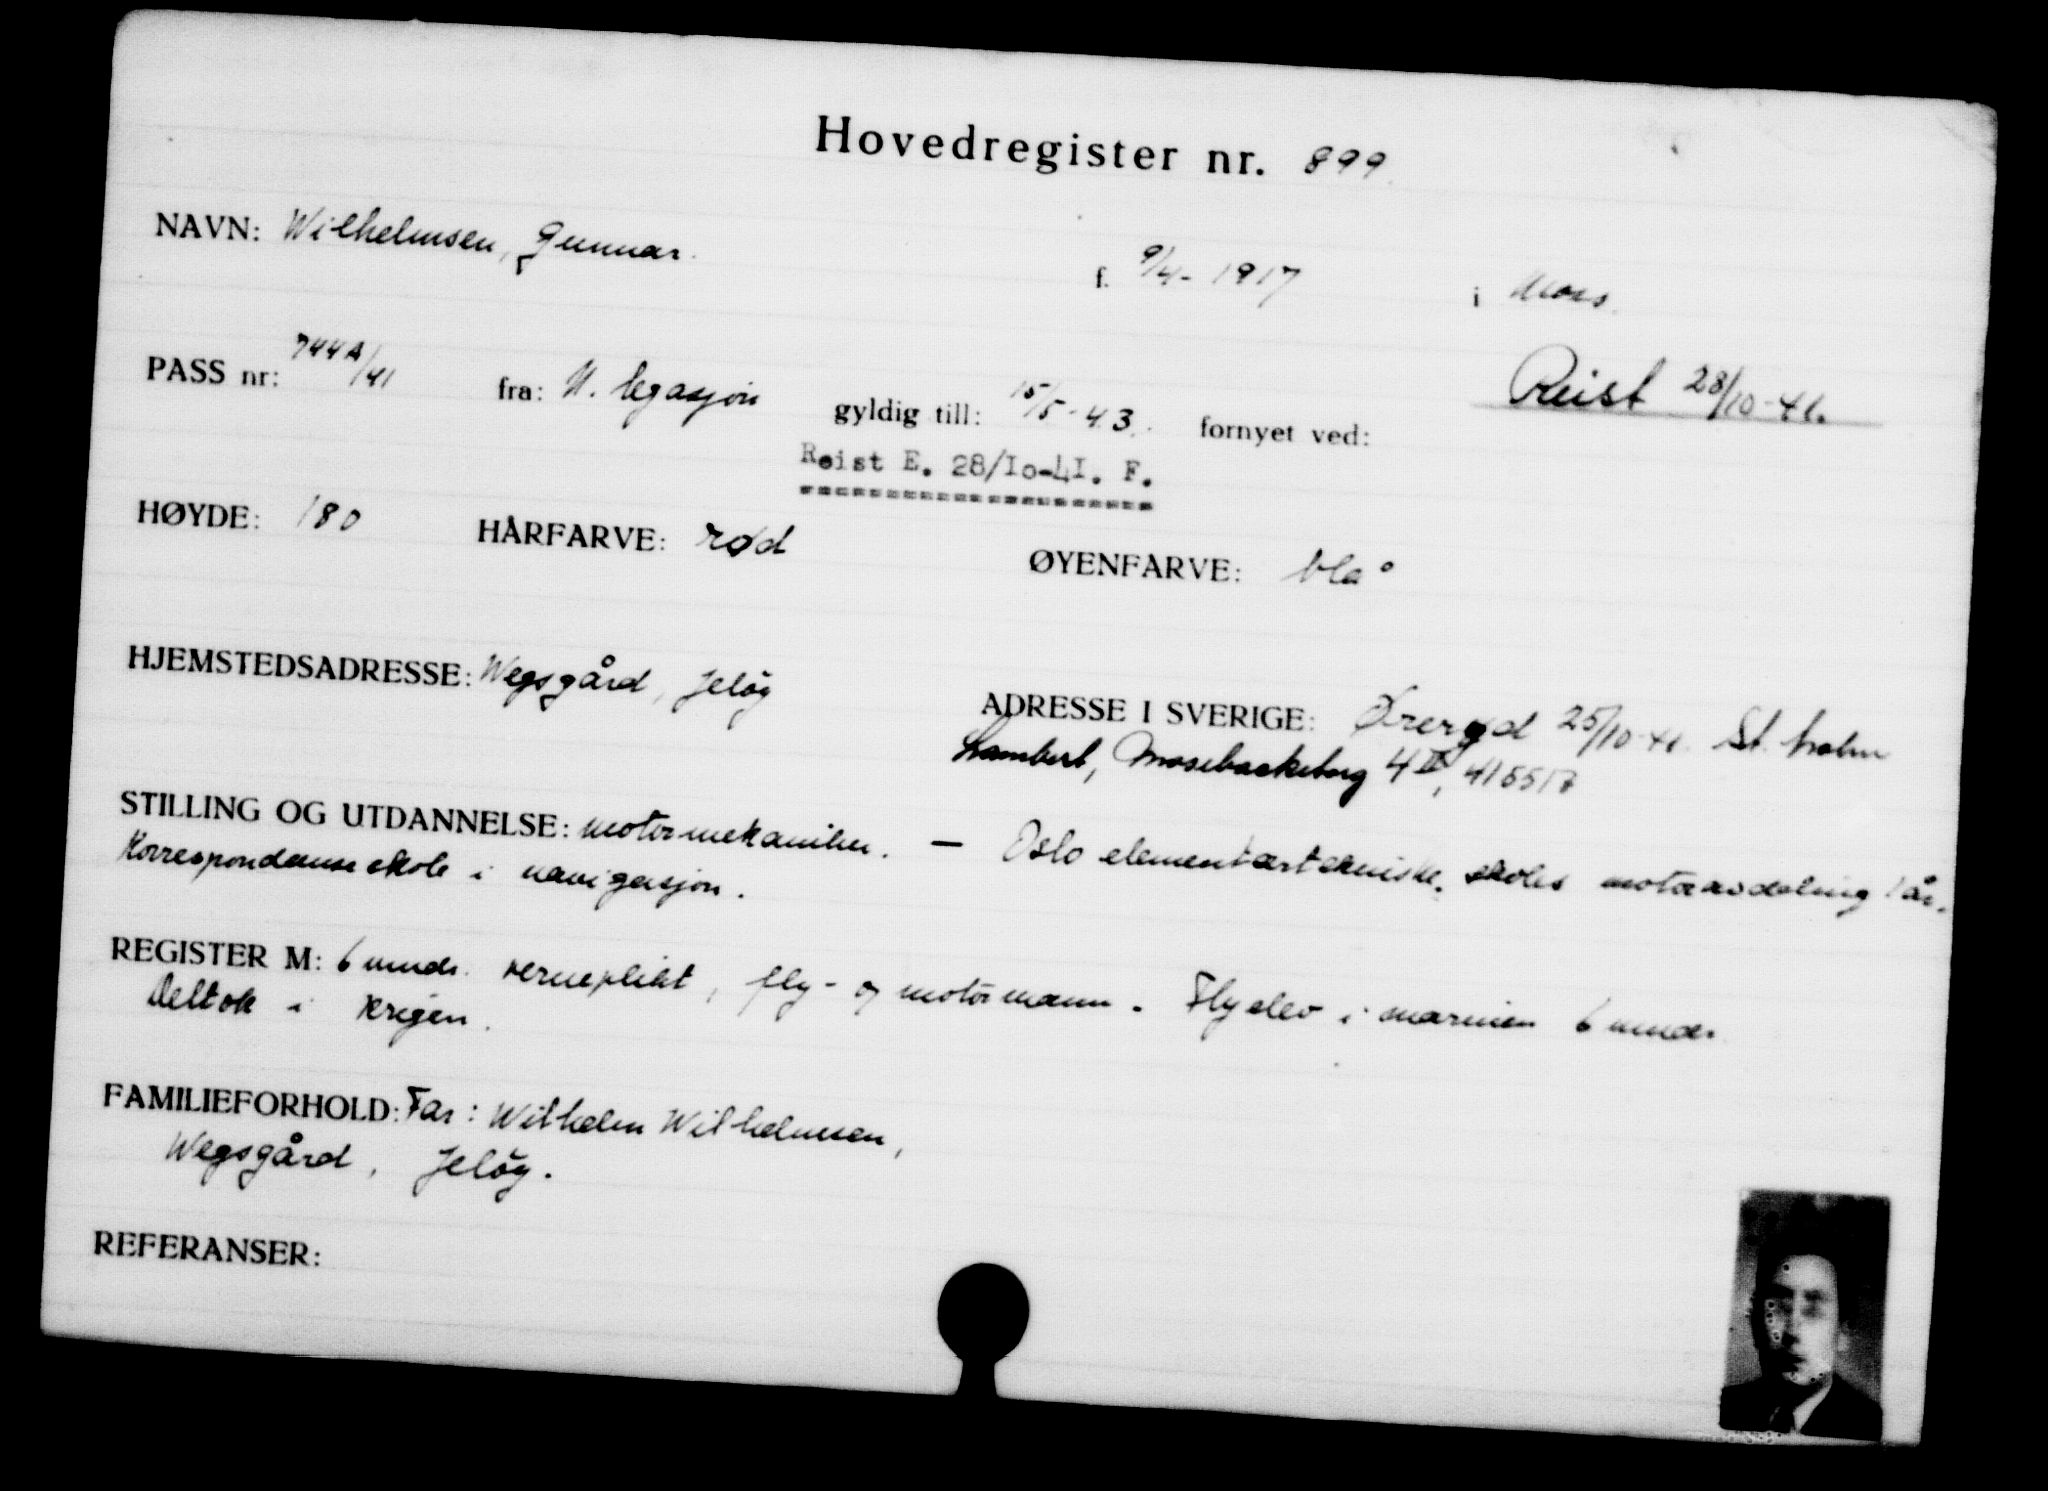 Hovedregister nr. 899.
NAVN: Wilhelmsen, Gunnar. f. 9/4-1917 i Moss.
PASS nr: 744A/41 fra: N. legasjon gyldig till: 15/5-43. fornyet ved: Reist 28/10-41.
Reist E. 28/Io-4I. F.
HØYDE: 180 HÅRFARVE: rød ØYENFARVE: blå
HJEMSTEDSADRESSE: Wegsgård, Jeløy
ADRESSE I SVERIGE: Øreryd 25/10-41. St.holm
Lambert, Mosebacketorg 4 II, 415517
STILLING OG UTDANNELSE: motormekaniker. — Oslo elementærtekniske skoles motoravdeling 1 år.
Korrespondanseskole i navigasjon.
REGISTER M: 6 mndr. verneplikt, fly- og motormann. Flyelev i marinen 6 mndr.
Deltok i krigen.
FAMILIEFORHOLD: Far: Wilhelm Wilhelmsen,
Wegsgård, Jeløy.
REFERANSER: